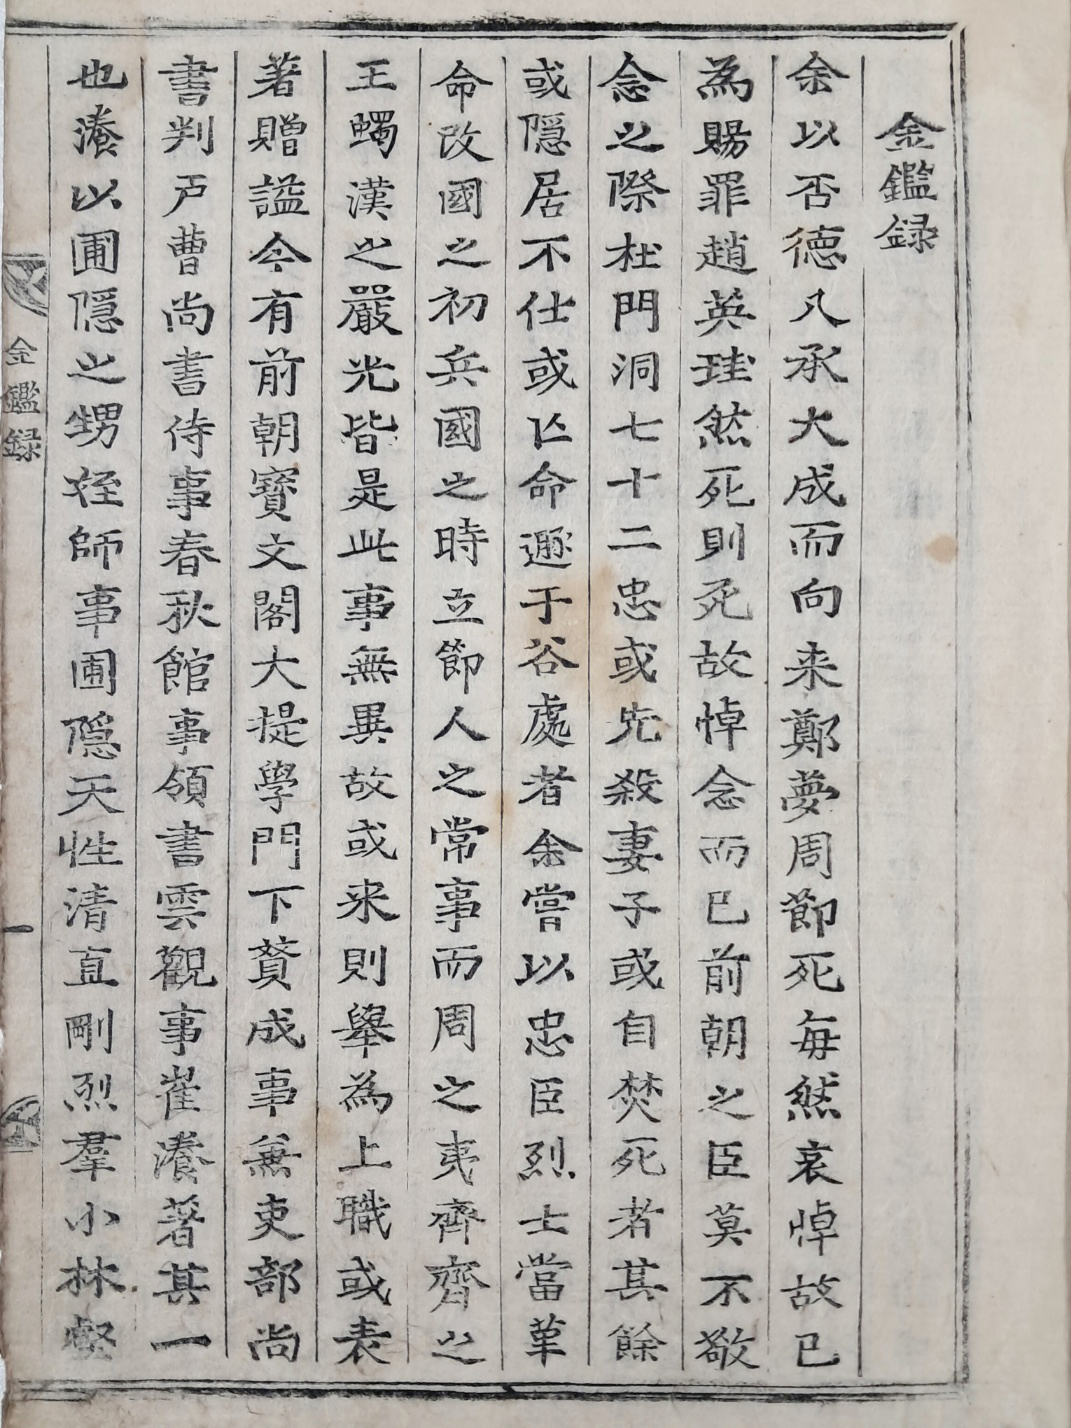 金鑑録
余以否德凡承大成而向来鄭夢周節死每然哀悼故已
為賜罪趙英珪然死則死故悼念而已前朝之臣莫不敬
念之際杜門洞七十二忠或先殺妻子或自焚死者其餘
或隱居不仕或亡命遯于谷處者余嘗以忠臣烈士當革
命改國之初兵國之時立節人之常事而周之夷齊齊之
王蠋漢之嚴光皆是此事無異故或来則擧為上職或表
著贈謚今有前朝寳文閣大提學門下賛成事兼吏部尚
書判戶曹尚書侍事春秋館事領書雲觀事崔瀁著其一
也瀁以圃隱之甥姪師事圃隱天性清直剛烈羣小林壑
金鑑録
一